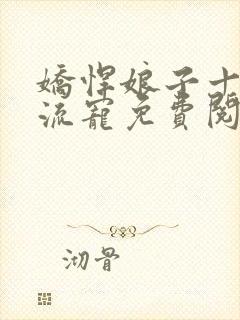 嬌悍娘子十
流寵免費閱
沏骨